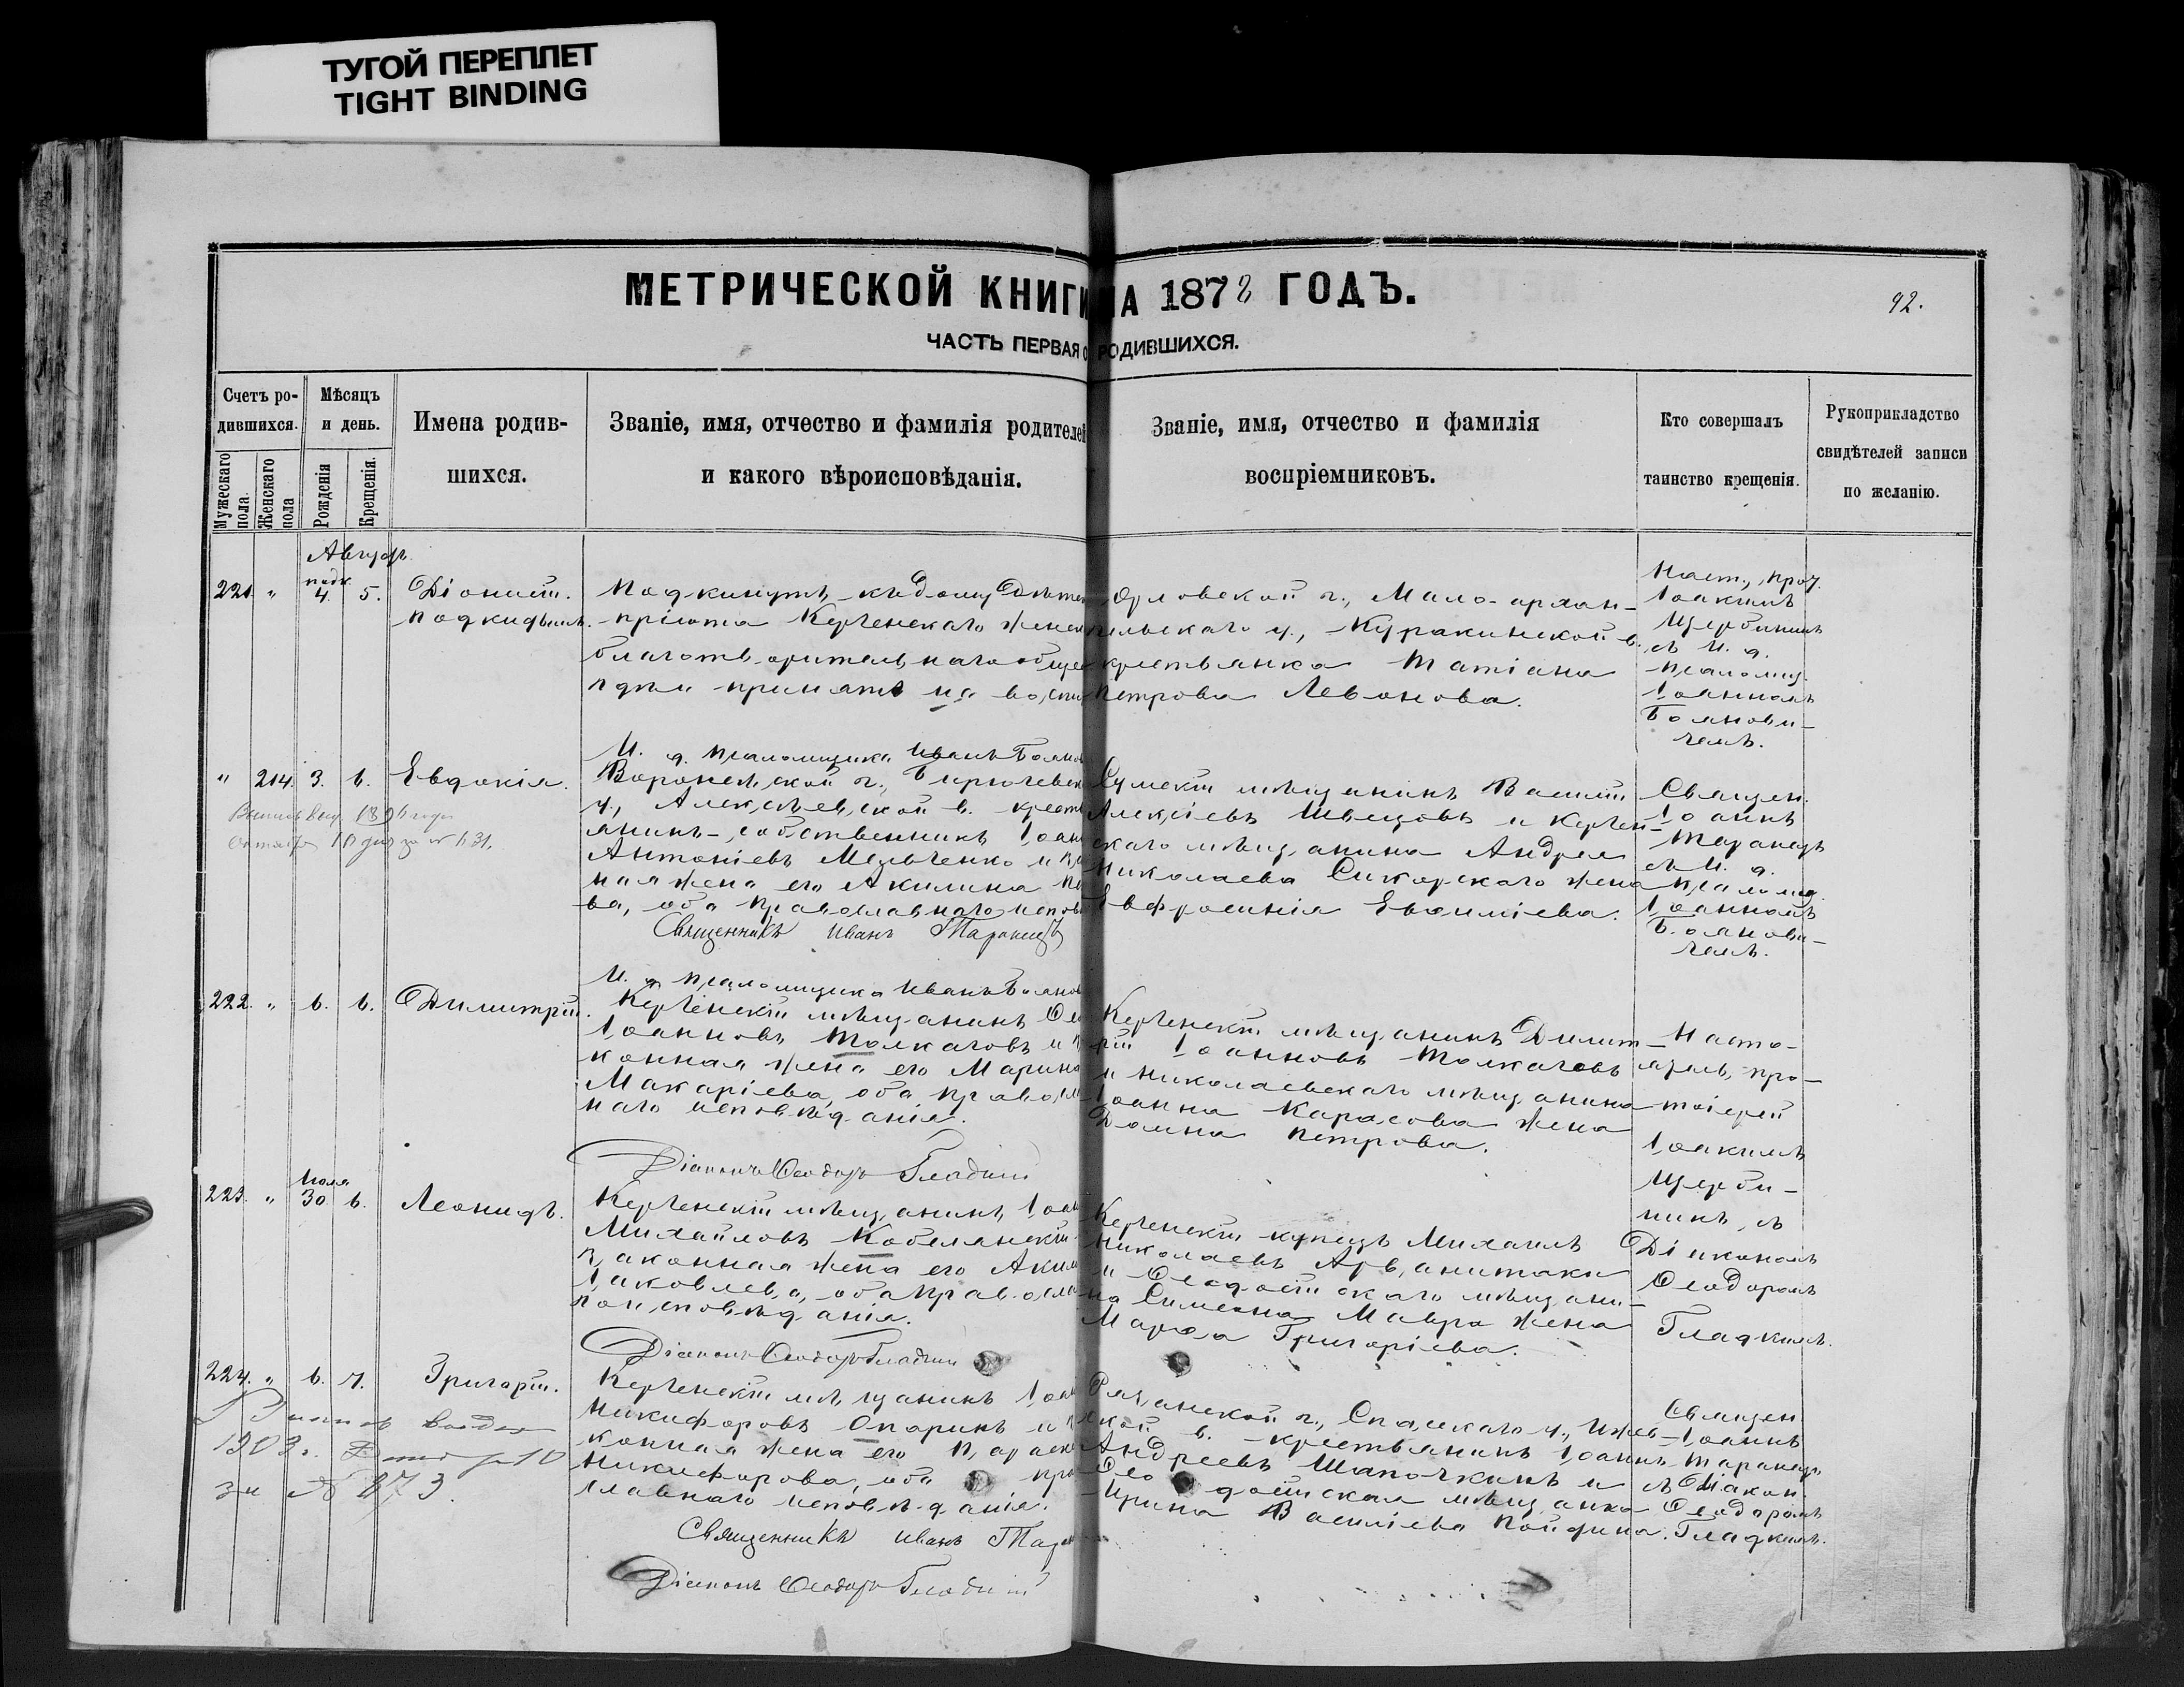 ТУГОЙ ПЕРЕПЛЕТ
TIGHT BINDING
МЕТРИЧЕСКОЙ КНИГИ НА 1872 ГОДЪ.
92.
ЧАСТЬ ПЕРВАЯ О РОДИВШИХСЯ.
Счетъ ро-
дившихся.
Мужескаго пола.
Женскаго пола
Мѣсяцъ
и день.
Рожденія
Крещенія.
Имена родив-
шихся.
Званіе, имя, отчество и фамилія родителей
и какого вѣроисповѣданія.
Званіе, имя, отчество и фамилія
воспріемниковъ.
Кто совершалъ
таинство крещенія.
Рукоприкладство
свидѣтелей записи
по желанію.
Август
221. " подк. 4. 5. Діонисій.
подкидышъ.
Подкинутъ къ дому Дѣтск
пріюта Керченскаго женск
благотворительнаго общес
гдѣ и принятъ на воспи
Орловской г., Мало-архан-
гельскаго у., Куракинской в.
крестьянка Татіана
Петрова Левонова.
Наст., прот.
Іоакимъ
Щербининъ
съ И. д.
псаломщ.
Іоанномъ
Боянови-
чемъ.
И. д. псаломщика Иванъ Боянов
" 214. 3. 6. Евдокія.
1896 года
10 дня за № 631.
Воронежской г., Бирюченск
у., Алексѣевской в. крест
янинъ-собственникъ Іоан
Антоніевъ Шевченко и за
ная жена его Акилина
ва, оба православнаго испов
Священникъ Иванъ Таранецъ
Сумскій мѣщанинъ Василій
Алексіевъ Швецовъ и Керчен-
скаго мѣщанина Андрея
Николаева Сикорскаго жена
Евфросинія Евѳиміева.
Священ.
Іоаннъ
Таранецъ
съ И. д.
псаломщ.
Іоанномъ
Боянови-
чемъ.
И. д. псаломщика Иванъ Боянов
222. " 6. 6. Димитрій.
Керченскій мѣщанинъ
Іоанновъ Толкачовъ и за
конная жена его Марина
Макаріева, оба правосла
наго исповѣданія.
Діаконъ Ѳеодоръ Гладкій
Керченскій мѣщанинъ Димит-
рій Іоанновъ Толкачовъ
и Николаевскаго мѣщанина
Іоанна Карасова жена
Домна Петрова.
Насто-
ятель, про-
тоіерей
Іоакимъ
Щерби-
нинъ, съ
Діакономъ
Ѳеодоромъ
Гладкимъ.
Іюля
223. " 30. 6. Леонидъ.
Керченскій мѣщанинъ Іоан
Михайловъ Кобелянскій
законная жена его Акил
Іаковлева, оба правосла
го исповѣданія.
Діаконъ Ѳеодоръ Гладкій
Керченскій купецъ Михаилъ
Николаевъ Арванитаки
и Ѳеодосійскаго мѣщани-
на Симеона Мавра жена
Марѳа Григоріева.
224. " 6. 7. Григорій.
1903 г. 10
за № 873.
Керченскій мѣщанинъ Іоан
Никифоровъ Опаринъ и за
конная жена его Параск
Никифорова, оба пра
славнаго исповѣданія.
Священникъ Иванъ Таран
Діаконъ Ѳеодоръ Гладкій
Рязанской г., Спасскаго у., Ижев-
ской в. крестьянинъ Іоаннъ
Андреевъ Шапочкинъ и
Ѳеодосійская мѣщанка
Ирина Василіева
Священ.
Іоаннъ
Таранецъ
съ Діакон.
Ѳеодоромъ
Гладкимъ.